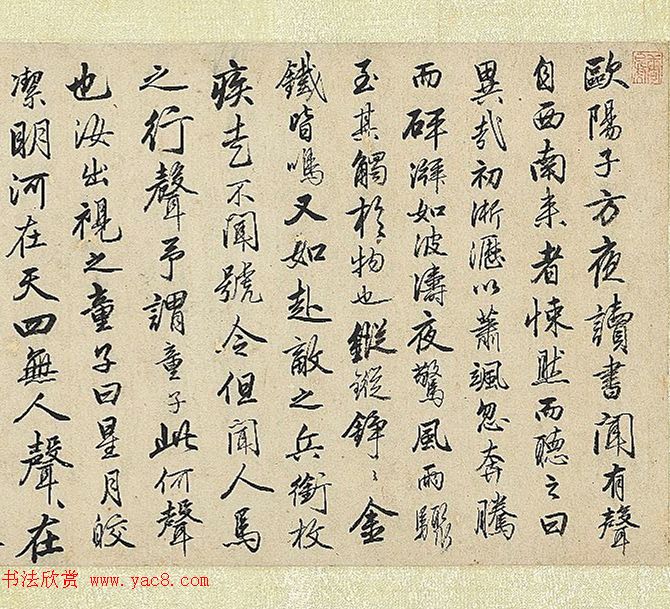 歐陽子方夜讀書聞有聲
自西南來者悚然而聽之曰
異哉初淅瀝以蕭颯忽奔騰
而砰湃如波濤夜驚風雨驟
至其觸於物也鏦鏦錚〻金
鐵皆鳴又如赴敵之兵銜枚
疾走不聞號令但聞人馬
之行聲予謂童子此何聲
也汝出視之童子曰星月皎
潔明河在天四無人聲〻在
书法欣赏 www.yac8.com